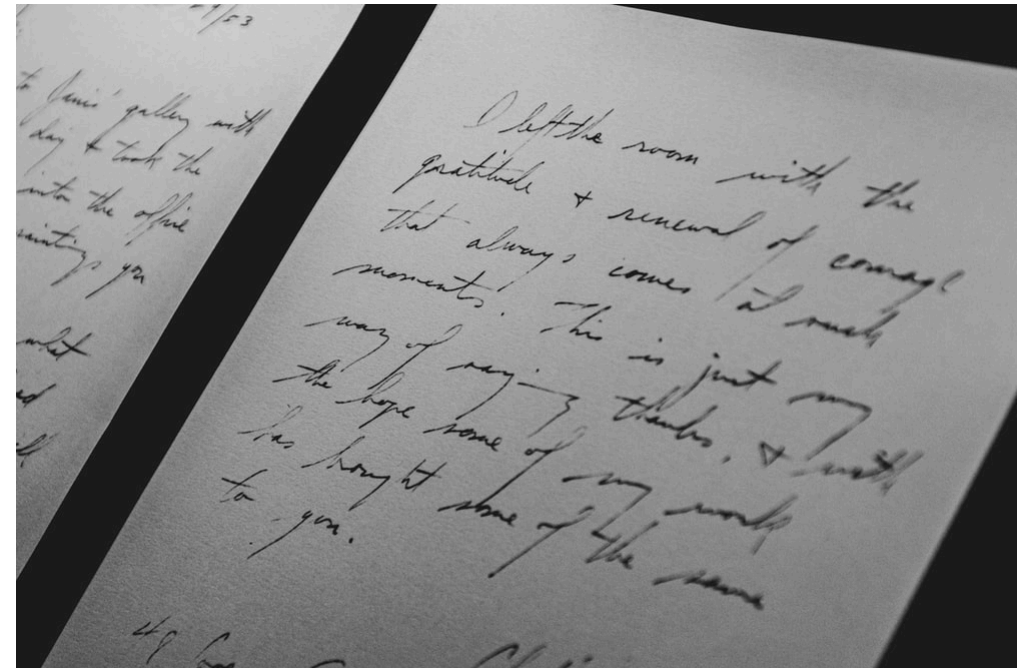 /53
to Janis' gallery with
day & took the
into the office
paintings you
what
ed
I left the room with the
gratitude & renewal of courage
that always comes at such
moments. This is just my
way of saying thanks, & with
the hope some of my work
has bought some of the same
to you.
48